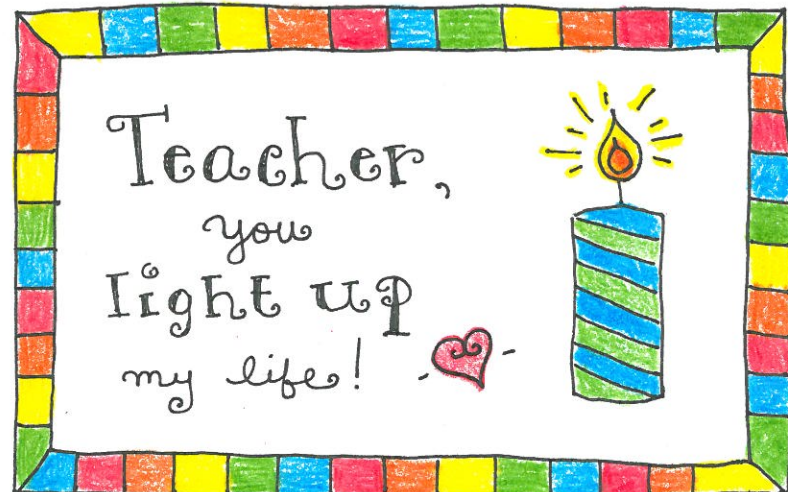 Teacher,
you
light up
my life!